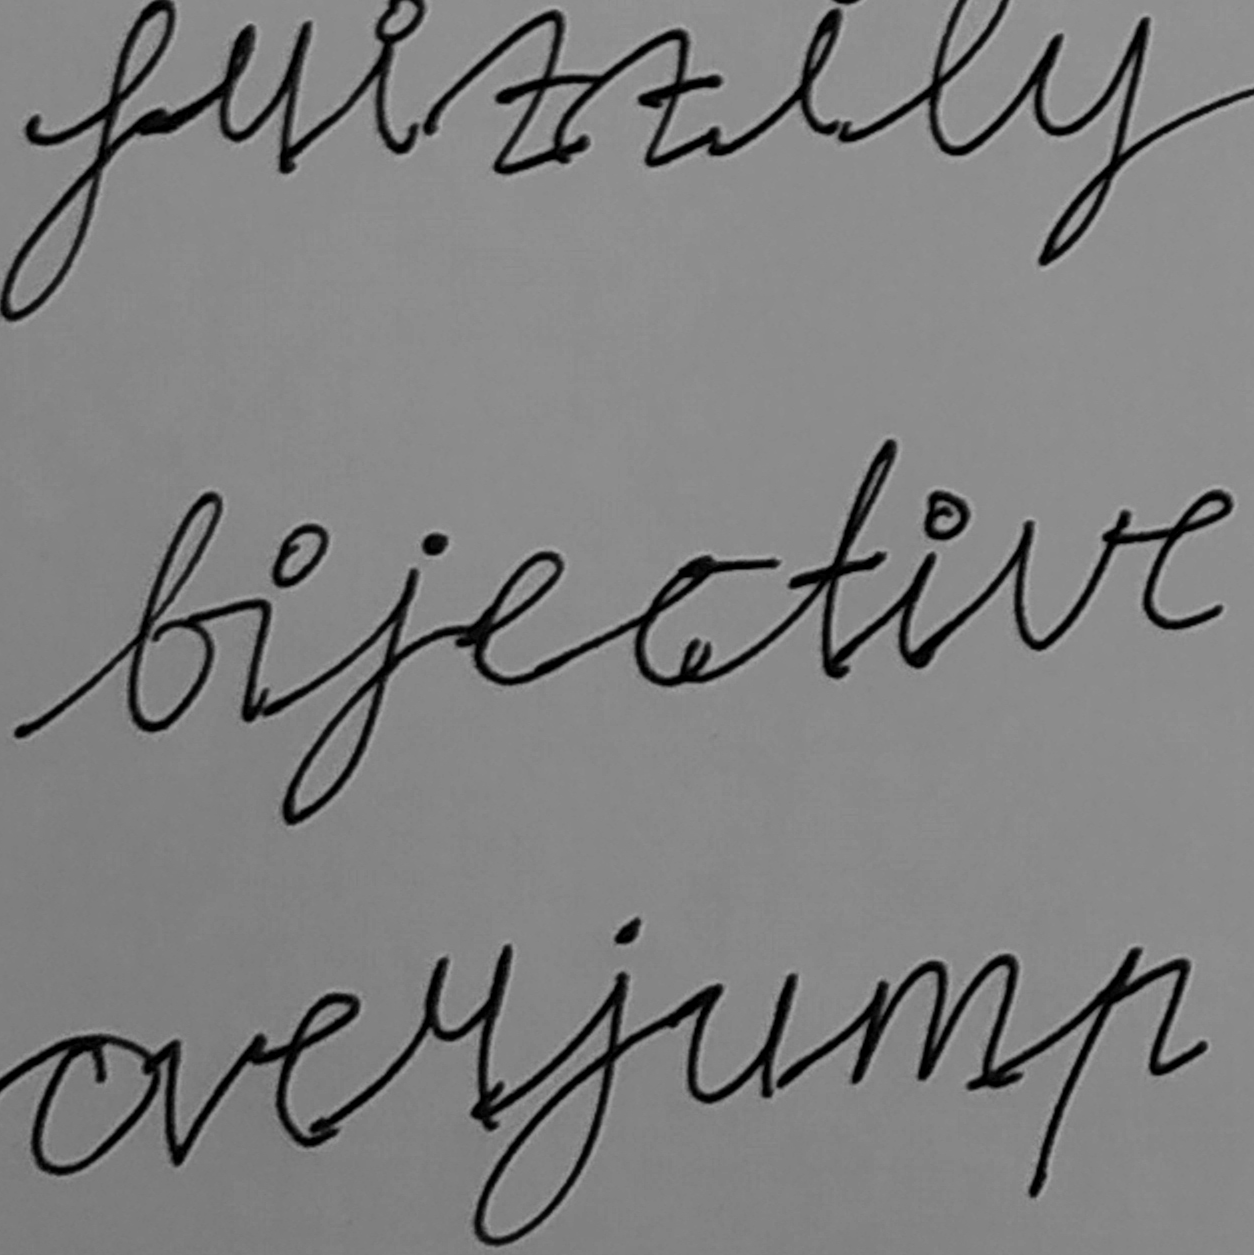 frizzily
bijective
overjump